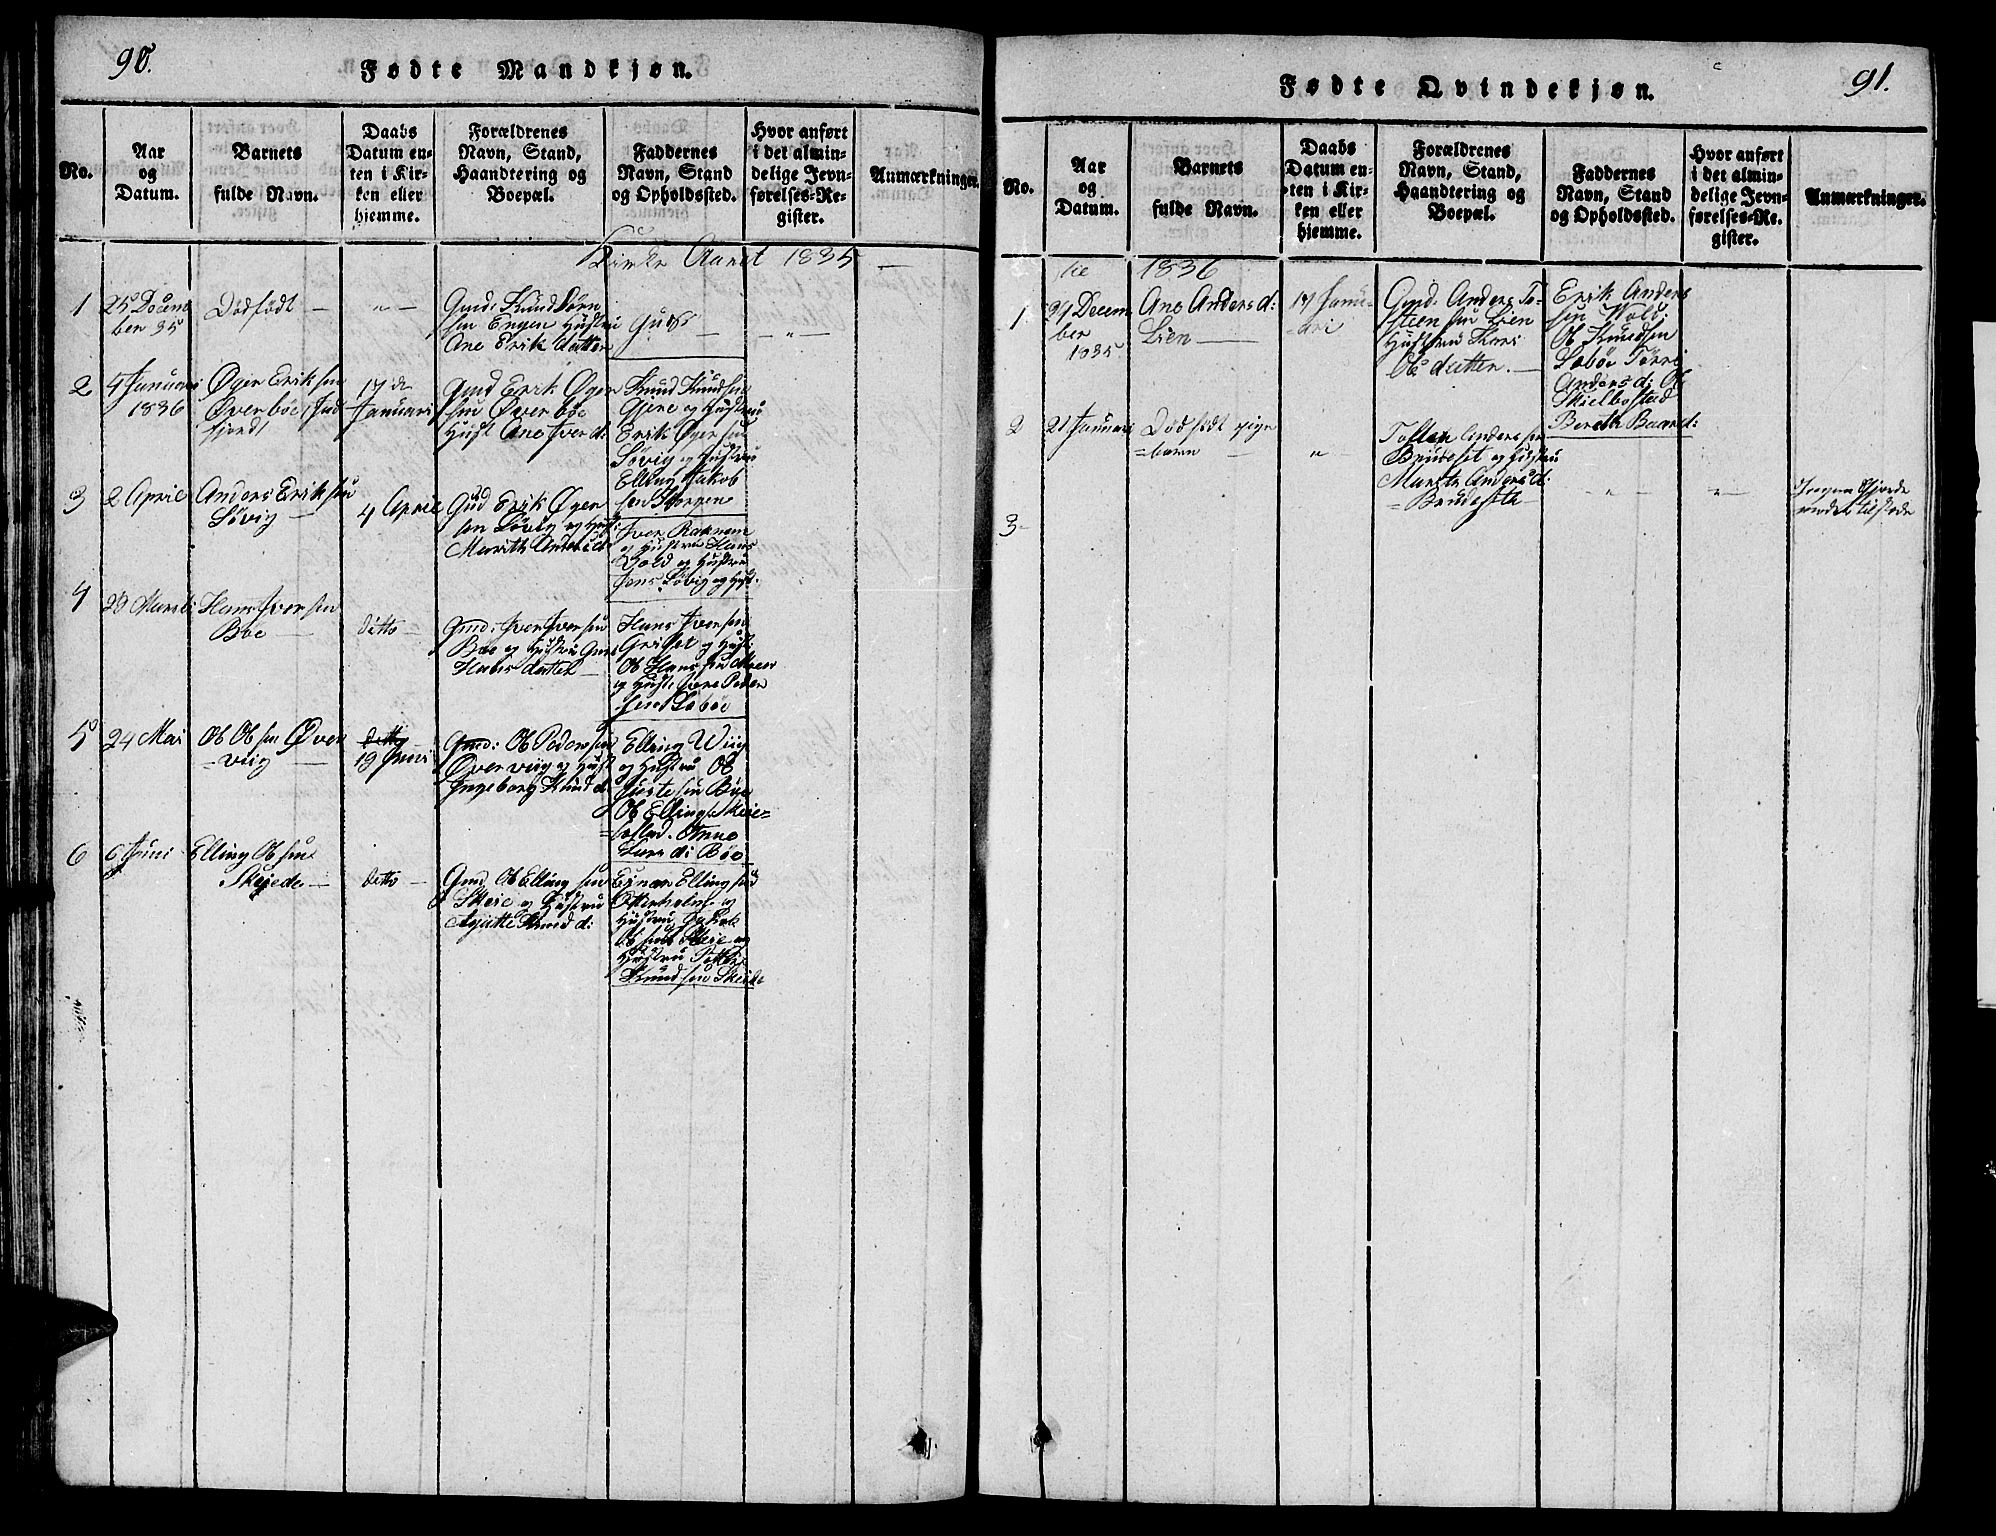 90.
Fødte Mandkjøn.
No.
Aar
og
Datum.
Barnets
fulde Navn.
Daabs
Datum en-
ten i Kir-
ken eller
hjemme.
Forældrenes
Navn, Stand,
Haandtering og
Boepæl.
Faddernes
Navn, Stand
og Opholdssted.
Hvor anført
i det almin-
delige Jevn-
førelses-Re-
gister.
Anmærkninger.
Kirke Aaret 1835
1
25 Decem
ber 35
Dødfödt —
Gmd: Knud
sen Engen Hustru
Ane Erik datter
2
4 Januari
1836
Øger Erik sen
Øverböe
fjord
17 de
Januari
Gmd Erik Øger
sen Øverböe
Hust Ane Iver d:
Knud Knudsen
Gjere og Hustru
Erik Øger sen
Lövig og Hustru
Elling Jakob
sen
3
2 April
Anders Erik sen
Lövig —
4 April
Gmd Erik Øger
sen Lövig og Hust:
Marith Anders d:
Iver
og Hustru Hans
Vold og Hustru
Jens Lövig og Hust.
4
28 Marti
Hans Iver sen
Böe —
ditto —
Gmd: Iver Iver sen
Böe og Hustru
Hans datter —
Hans Iver sen
Griset og Hust:
Ole Hans sen
og Hust: Iver Peder
sen Løböe
5
24 Mai
Ole Ole sen Øver
=viig —
ditto
19 Juni
Gmd: Ole Peder sen
Øverviig og Hust
Ingeborg Knud d:
Elling Wiig
og Hustru Ole
sen Böe
Ole Elling s: Skeie=
=
Lars d: Böe
6
6 Juni
Elling Ole sen
Skeide —
ditto —
Gmd Ole Elling sen
Skeie og Hustru
Agatte Knud d:
Einar Elling sen
Otterholm og
Hustru Jakob
Ole sen Skeie og
Hustru Petter
Knud sen Skeide
91.
Fødte Qvindekjøn.
No.
Aar
og
Datum.
Barnets
fulde Navn.
Daabs
Datum en-
ten i Kir-
ken eller
hjemme.
Forældrenes
Navn, Stand,
Haandtering og
Boepæl.
Faddernes
Navn, Stand
og Opholdssted.
Hvor anført
i det almin-
delige Jevn-
førelses-Re-
gister.
Anmærkninger.
1836
1
31 Decem
ber
1835
Ane Anders d:
Lien —
17 Janu-
ari
Gmd: Anders To-
steen sen Lien
Hustru Kari
Ole datter. —
Erik Anders
sen Vold:
Ole Knudsen
Løböe
Anders d:
Skielbostad
Bereth Baar d:
2
21 Januari
Dödfödt pige
=barn —
Anders sen
Brudeset og Hustru
Marith Anders d:
=Brudeseth —
tilstede
3